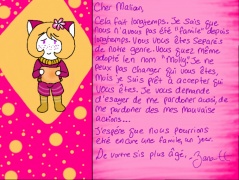 Cher Masian,
Cela fait longtemps. Je sais que
nous n'avous pas été "famille" depuis
longtemps. Vous vous êtes séparés
de notre genre. Vous avez même
adopté len nom "Molly". Je ne
peux pas changer qui vous êtes,
Mais je suis prêt à accepter qui
vous êtes. Je vous demande
d'esager de me pardoner aussi, de
me pardoner des mes mauvaise
actions...
J'espère que nous pourrions
été encore une famile, un jour.
De votre sis plus âgé,